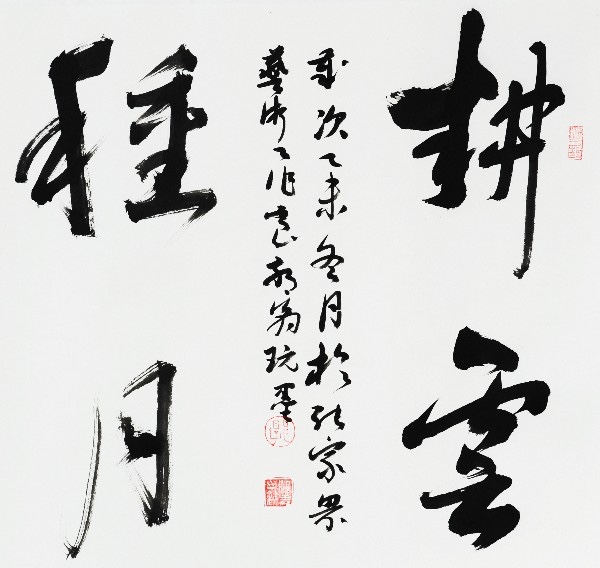 耕雲
歲次乙未冬月於張家界
藝術工作室翁玩墨
種月